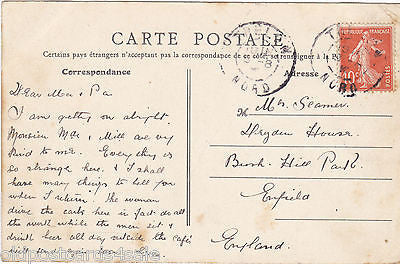 CARTE POSTALE
Certains pays étrangers n'acceptent pas la correspondance de ce côté, se renseigner à la P
Correspondance
Adresse
NORD
NORD
REPUBLIQUE FRANÇAISE
10
POSTES
Dear Ma & Pa
I am getting on alright.
Monsieur & Mlle are very
kind to me. Everything is
so strange here, & I shall
have many things to tell you
when I return. The women
drive the carts here in fact do all
the work while the men sit &
drink beer all day outside the cafés
Mrs. Seamer
Dryden House
Bush Hill Park
Enfield
England.